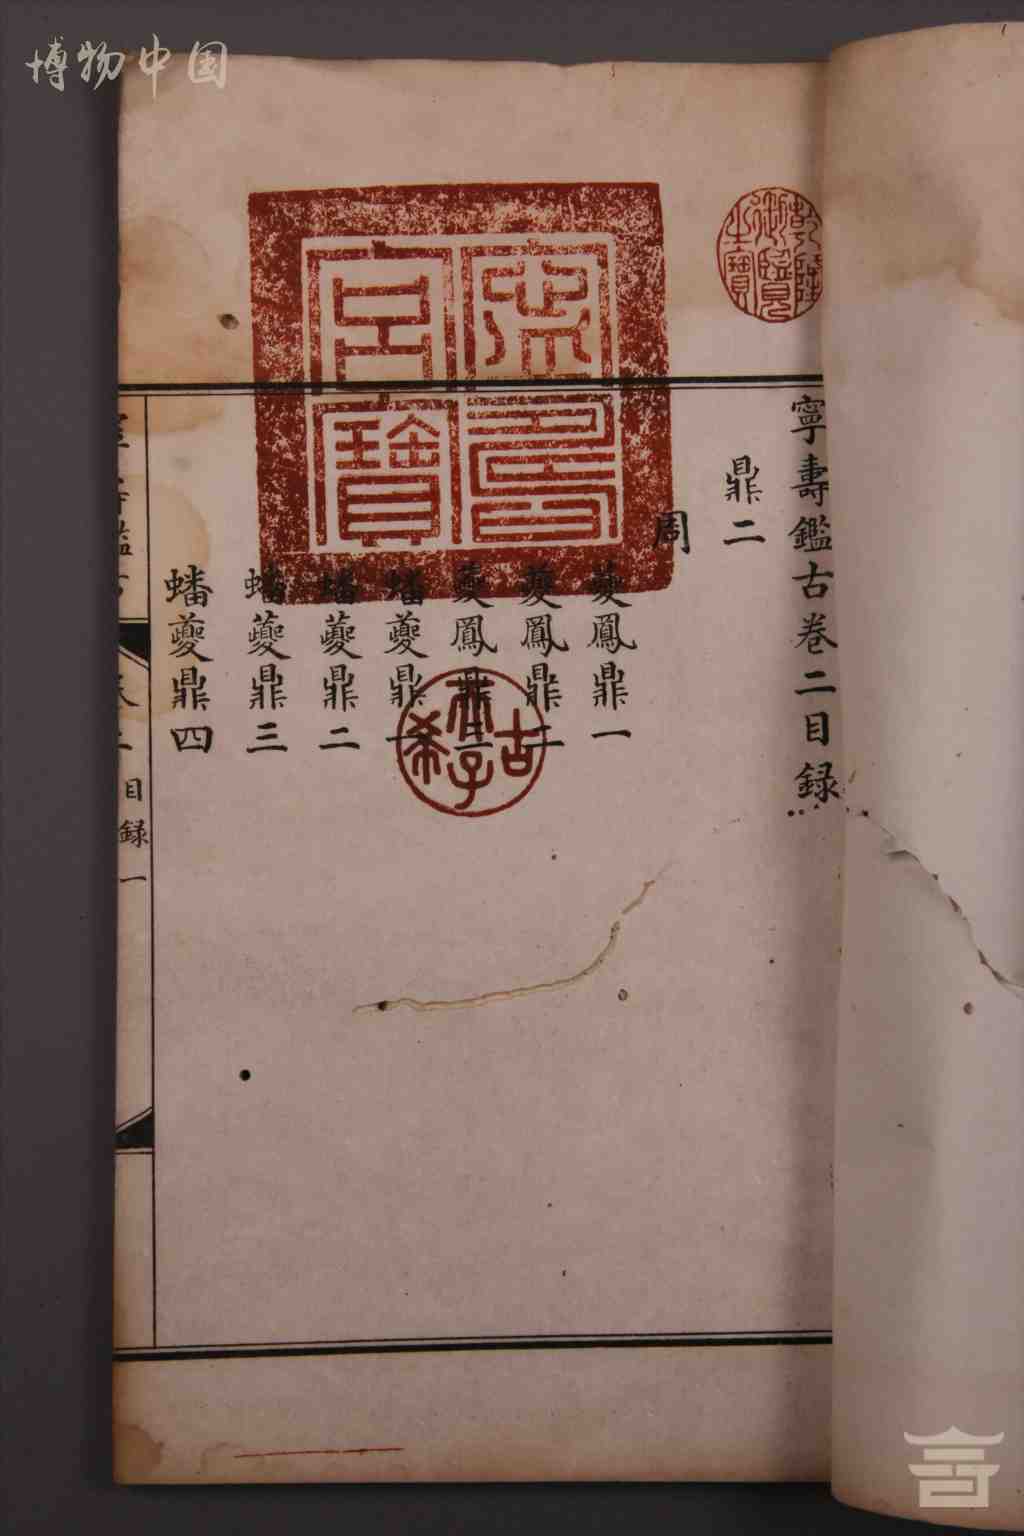 博物中国
寧壽鑑古卷二目録
鼎二
周
夔鳳鼎一
夔鳳鼎二
夔鳳鼎三
蟠夔鼎一
蟠夔鼎二
蟠夔鼎三
蟠夔鼎四
寧壽鑑古
卷二
目録一
乾隆
御覽
之寶
寧壽
宮寶
古
希
天子